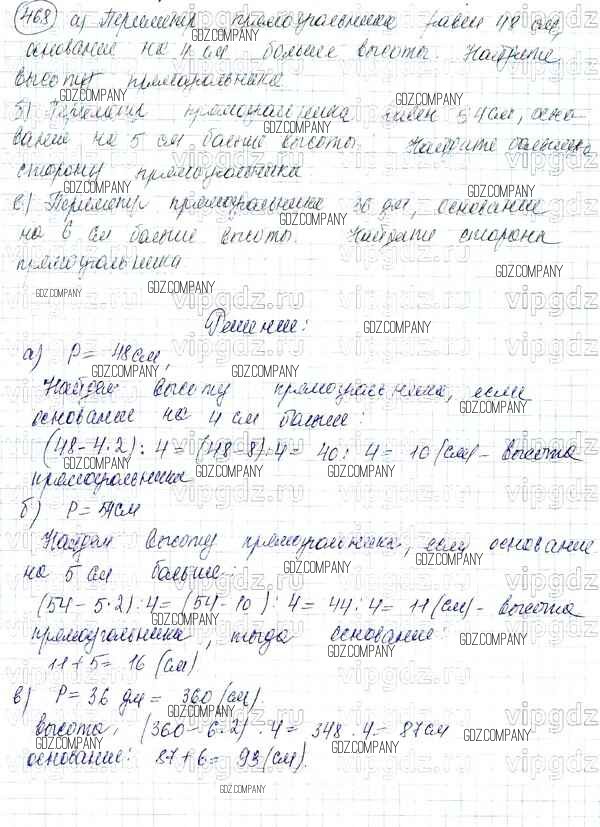 468 а) Периметр прямоугольника равен 48 см,
основание на 4 см больше высоты. Найдите
высоту прямоугольника
б) Периметр прямоугольника равен 54 см, осно-
вание на 5 см больше высоты. Найдите большую
сторону прямоугольника
в) Периметр прямоугольника 36 дм, основание
на 6 см больше высоты. Найдите стороны
прямоугольника
Решение:
а) P = 48 см,
Найдем высоту прямоугольника, если
основание на 4 см больше:
(48-4·2):4 = (48-8):4 = 40:4 = 10 (см) - высота
прямоугольника
б) P = 54 см
Найдем высоту прямоугольника, если основание
на 5 см больше:
(54-5·2):4 = (54-10):4 = 44:4 = 11 (см) - высота
прямоугольника, тогда основание:
11+5 = 16 (см)
в) P = 36 дм = 360 (см)
высота: (360-6·2):4 = 348:4 = 87 см
основание: 87+6 = 93 (см).